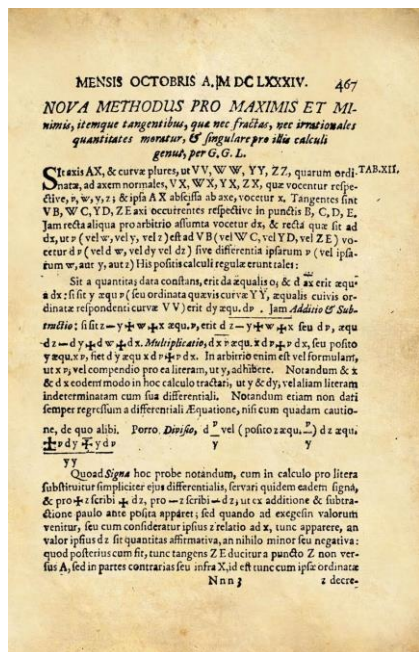 MENSIS OCTOBRIS A. M DC LXXXIV. 467
NOVA METHODUS PRO MAXIMIS ET MI-
nimis, itemque tangentibus, quæ nec fractas, nec irrationales
quantitates moratur, & singulare pro illis calculi
genus, per G. G. L.
SIt axis AX, & curvæ plures, ut VV, WW, YY, ZZ, quarum ordi-
TAB. XII.
natæ, ad axem normales, VX, WX, YX, ZX, quæ vocentur respe-
ctive, v, w, y, z; & ipsa AX abscissa ab axe, vocetur x. Tangentes sint
VB, WC, YD, ZE axi occurrentes respective in punctis B, C, D, E.
Jam recta aliqua pro arbitrio assumta vocetur dx, & recta quæ sit ad
dx, ut v (vel w, vel y, vel z) est ad VB (vel WC, vel YD, vel ZE) vo-
cetur dv (vel dw, vel dy vel dz) sive differentia ipsarum v (vel ipsa-
rum w, aut y, aut z) His positis calculi regulæ erunt tales:
Sit a quantitas data constans, erit da æqualis 0, & d ax erit æqu.
a dx: si sit y æqu v (seu ordinata quævis curvæ YY, æqualis cuivis or-
dinatæ respondenti curvæ VV) erit dy æqu. dv. Jam Additio & Sub-
tractio; si sit z - y + w + x æqu. v, erit d z - y + w + x seu dv, æqu
dz - dy + dw + dx. Multicatio, d xv æqu. x dv + v dx, seu posito
y æqu. xv, fiet dy æqu x dv + v dx. In arbitrio enim est vel formulam,
ut xv, vel compendio pro ea literam, ut y, adhibere. Notandum & x
& dx eodem modo in hoc calculo tractari, ut y & dy, vel aliam literam
indeterminatam cum sua differentiali. Notandum etiam non dari
semper regressum a differentiali Æquatione, nisi cum quadam cautio-
ne, de quo alibi. Porro Divisio, d v/y vel (posito z æqu. v/y) dz æqu.
± v dy ∓ y dv
yy
Quoad Signa hoc probe notandum, cum in calculo pro litera
substituitur simpliciter ejus differentialis, servari quidem eadem signa,
& pro + z scribi + dz, pro - z scribi - dz, ut ex additione & subtra-
ctione paulo ante posita apparet; sed quando ad exegesin valorum
venitur, seu cum consideratur ipsius z relatio ad x, tunc apparere, an
valor ipsius dz sit quantitas affirmativa, an nihilo minor seu negativa:
quod posterius cum fit, tunc tangens ZE ducitur a puncto Z non ver-
sus A, sed in partes contrarias seu infra X, id est tunc cum ipsæ ordinatæ
Nnn 3 z decre-